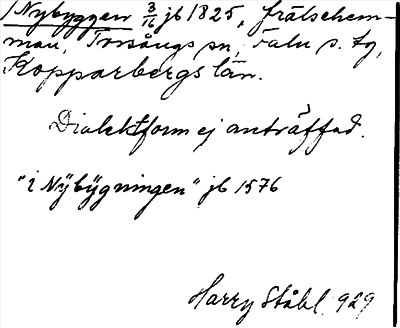 /Nybyggen 3/16 jb 1825, frälsehem-
man, Torsångs sn, Falu s. tg,
Kopparbergs län.
Dialektform ej anträffad.
"i Nÿbÿgningen" jb 1576
Harry Ståhl 929